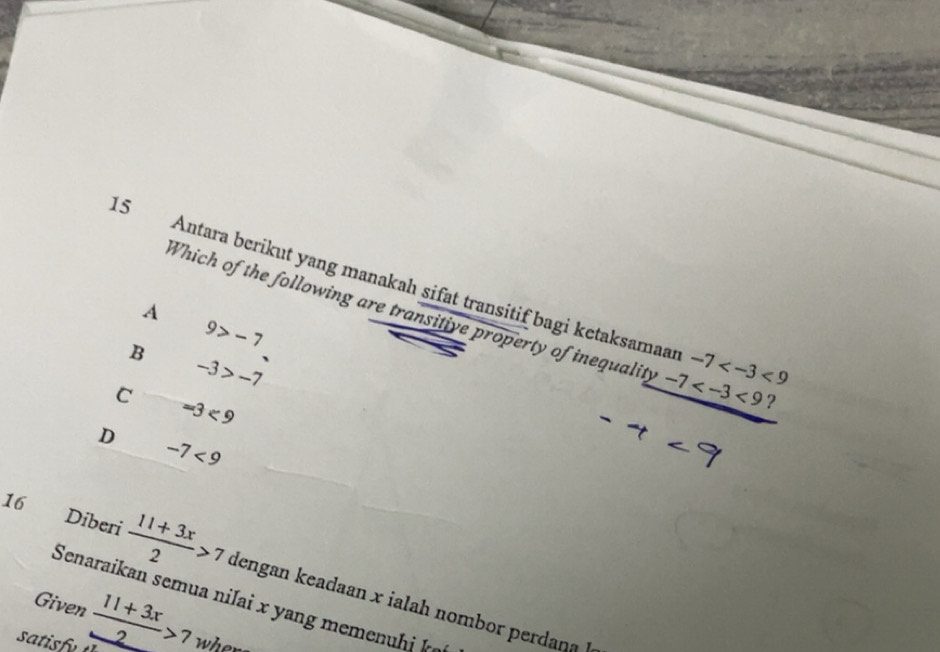 15 Antara berikut yang manakah sifat transitif bagi ketaksamaan −7 < −3 < 9
Which of the following are transitive property of inequality −7 < −3 < 9 ?
A 9 > − 7
B −3 > −7
C −3 < 9
D −7 < 9
- 7 < 9
16 Diberi 11 + 3x / 2 > 7 dengan keadaan x ialah nombor perdana
Senaraikan semua nilai x yang memenuhi
Given 11 + 3x / 2 > 7
satisfy